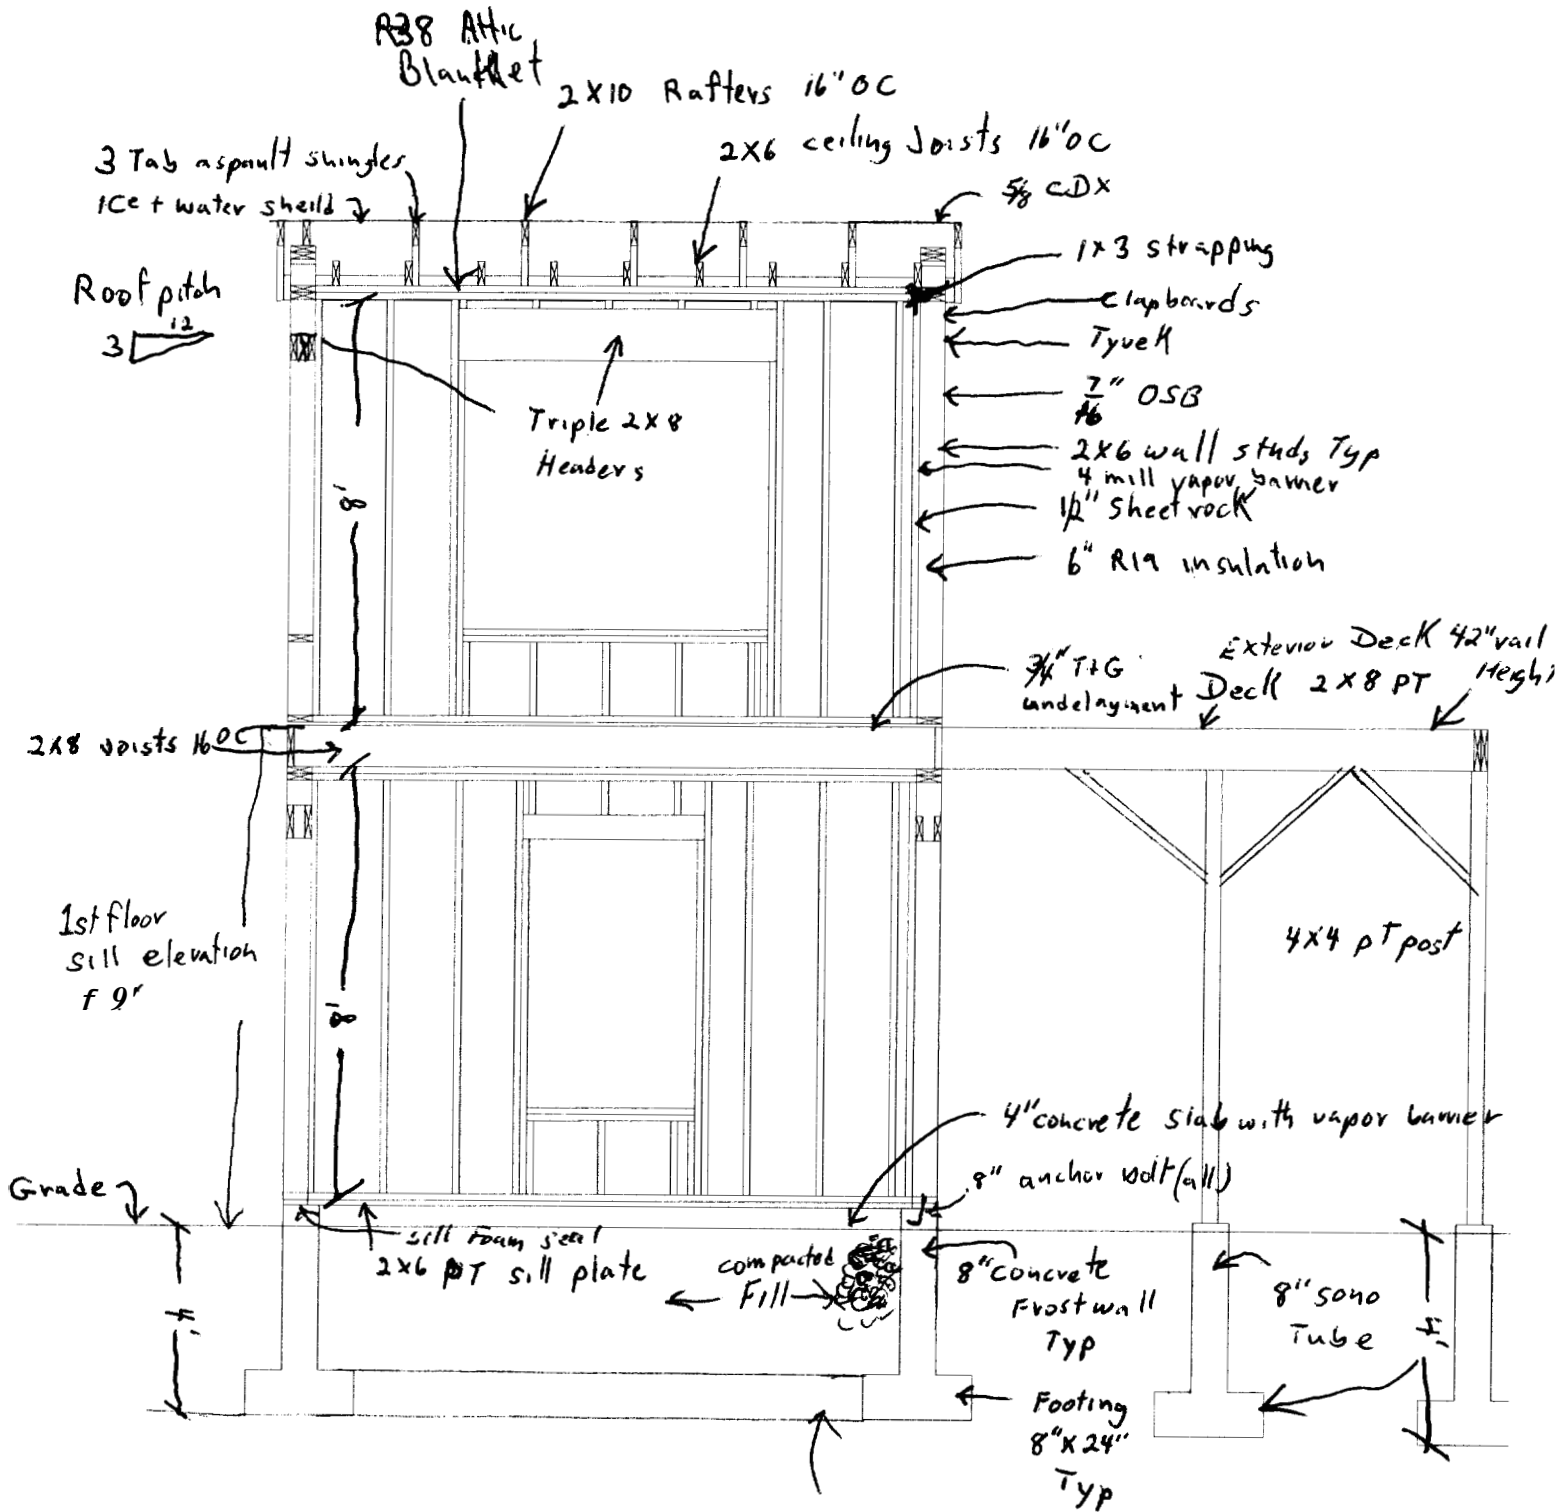 R38 Attic
Blanket
2x10 Rafters 16" OC
2x6 ceiling Joists 16" OC
3 Tab aspault shingles
ICe + water sheild
5/8 CDX
1x3 strapping
Roof pitch
12
3
Clapboards
Tyvek
7/16" OSB
Triple 2x8
Headers
2x6 wall studs Typ
4 mill vapor barrier
1/2" Sheetrock
6" R19 insulation
8'
3/4" T+G
undelayment
Exterior Deck 42" rail
Height
Deck 2x8 PT
2x8 Joists 16 OC
1st floor
sill elevation
f 9'
8'
4x4 PT post
4" concrete slab with vapor barrier
8" anchor bolt (all)
Grade
sill Foam seal
2x6 PT sill plate
compacted
Fill
8" concrete
Frostwall
Typ
8" sono
Tube
4'
4'
Footing
8" x 24"
Typ